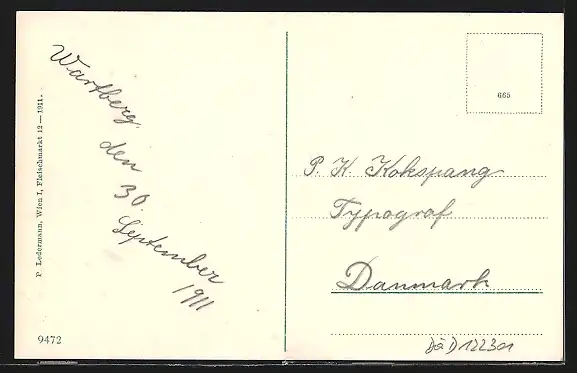 Wartberg
den
30.
September
1911
P. Ledermann, Wien I, Fleischmarkt 12 — 1911.
9472
665
P. K. Kokspang
Typograf
Danmark